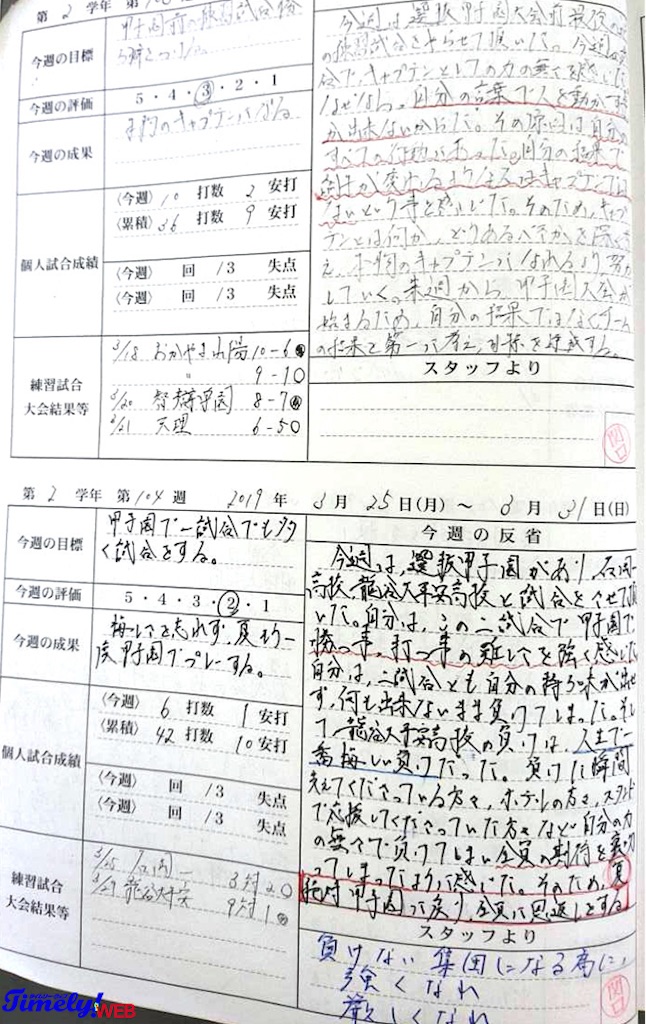 第 2 学年 第
今週の目標
甲子園前の練習試合全
勝
今週の評価
5・4・③・2・1
今週の成果
本物のキャプテンになる
個人試合成績
〈今週〉 10 打数 2 安打
〈累積〉 36 打数 9 安打
〈今週〉 回 /3 失点
〈今週〉 回 /3 失点
練習試合
大会結果等
3/18 おかやま山陽 10-6
〃 9-1○
3/20 智辯学園 8-7
3/21 天理 6-5○
今週は、選抜甲子園大会前最後の
の練習試合をやらせて頂いた。今週の試
合で、キャプテンとしての力の無さを感じた。
なぜなら、自分の言葉で人を動かす事
が出来ないからだ。その原因は自分の
すべての行動にあった。自分の結果で
態度が変わるようなら、キャプテンでは
ないという事を感じた。そのため、キャプ
テンとは何か、どうあるべきかを深く考
え、本物のキャプテンになれるよう、努力
していく。来週から、甲子園大会が
始まるため、自分の結果ではなく、チーム
の結果を第一に考え、目標を達成する。
スタッフより
関口
第 2 学年 第 104 週 2019 年 3 月 25 日(月) ～ 3 月 31 日(日)
今週の目標
甲子園で一試合でも多
く試合をする。
今週の評価
5・4・3・②・1
今週の成果
悔しさを忘れず、夏もう一
度甲子園でプレーする。
個人試合成績
〈今週〉 6 打数 1 安打
〈累積〉 42 打数 10 安打
〈今週〉 回 /3 失点
〈今週〉 回 /3 失点
練習試合
大会結果等
3/25 石岡一 3対2○
3/29 龍谷大平安 9対1
今週の反省
今週は、選抜甲子園があり、石岡一
高校、龍谷大平安高校と試合をさせて頂
いた。自分は、この二試合で甲子園で
勝つ事、打つ事の難しさを強く感じた。
自分は、二試合とも自分の持ち味が出せ
ず、何も出来ないまま負けてしまった。そし
て、龍谷大平安高校の負けは、人生で一
番悔しい負けだった。負けた瞬間
支えてくださっている方々、ホテルの方々、スタンド
で応援してくださっていた方々など、自分の力
の無さで負けてしまい全員の期待を裏切
ってしまったように感じた。そのため、夏
絶対甲子園に戻り、全員に恩返しをする。
スタッフより
負けない集団になる為に、
強くなれ
厳しくなれ
関口
Timely! WEB